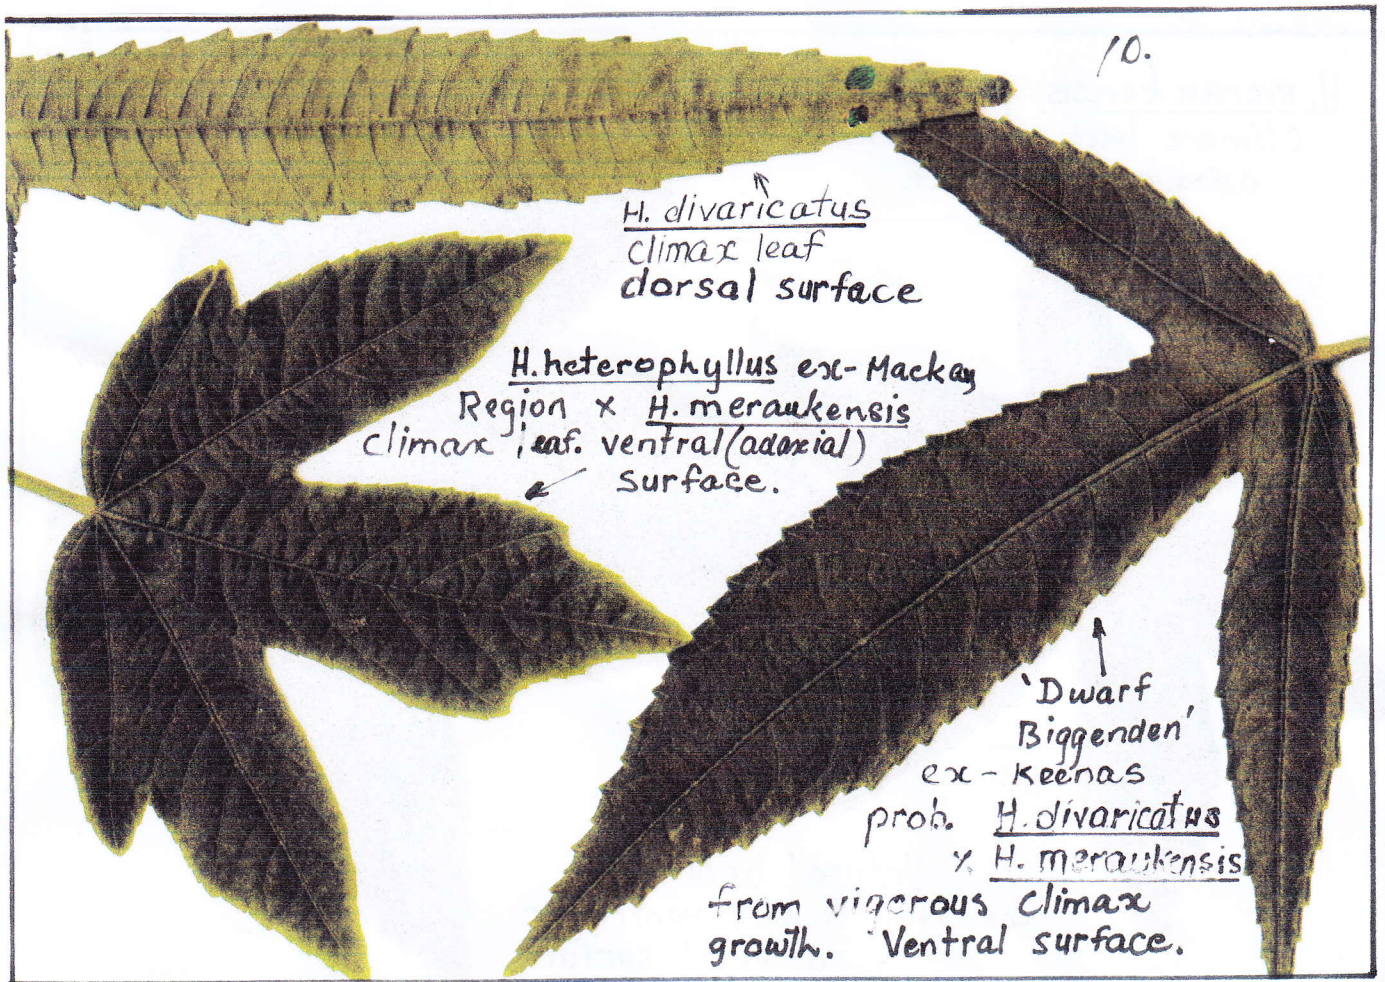 10.
H. divaricatus
climax leaf
dorsal surface
H. heterophyllus ex-Mackay
Region x H. meraukensis
climax leaf. ventral (adaxial)
surface.
'Dwarf
Biggenden'
ex-Keenas
prob. H. divaricatus
x H. meraukensis
from vigorous climax
growth. Ventral surface.